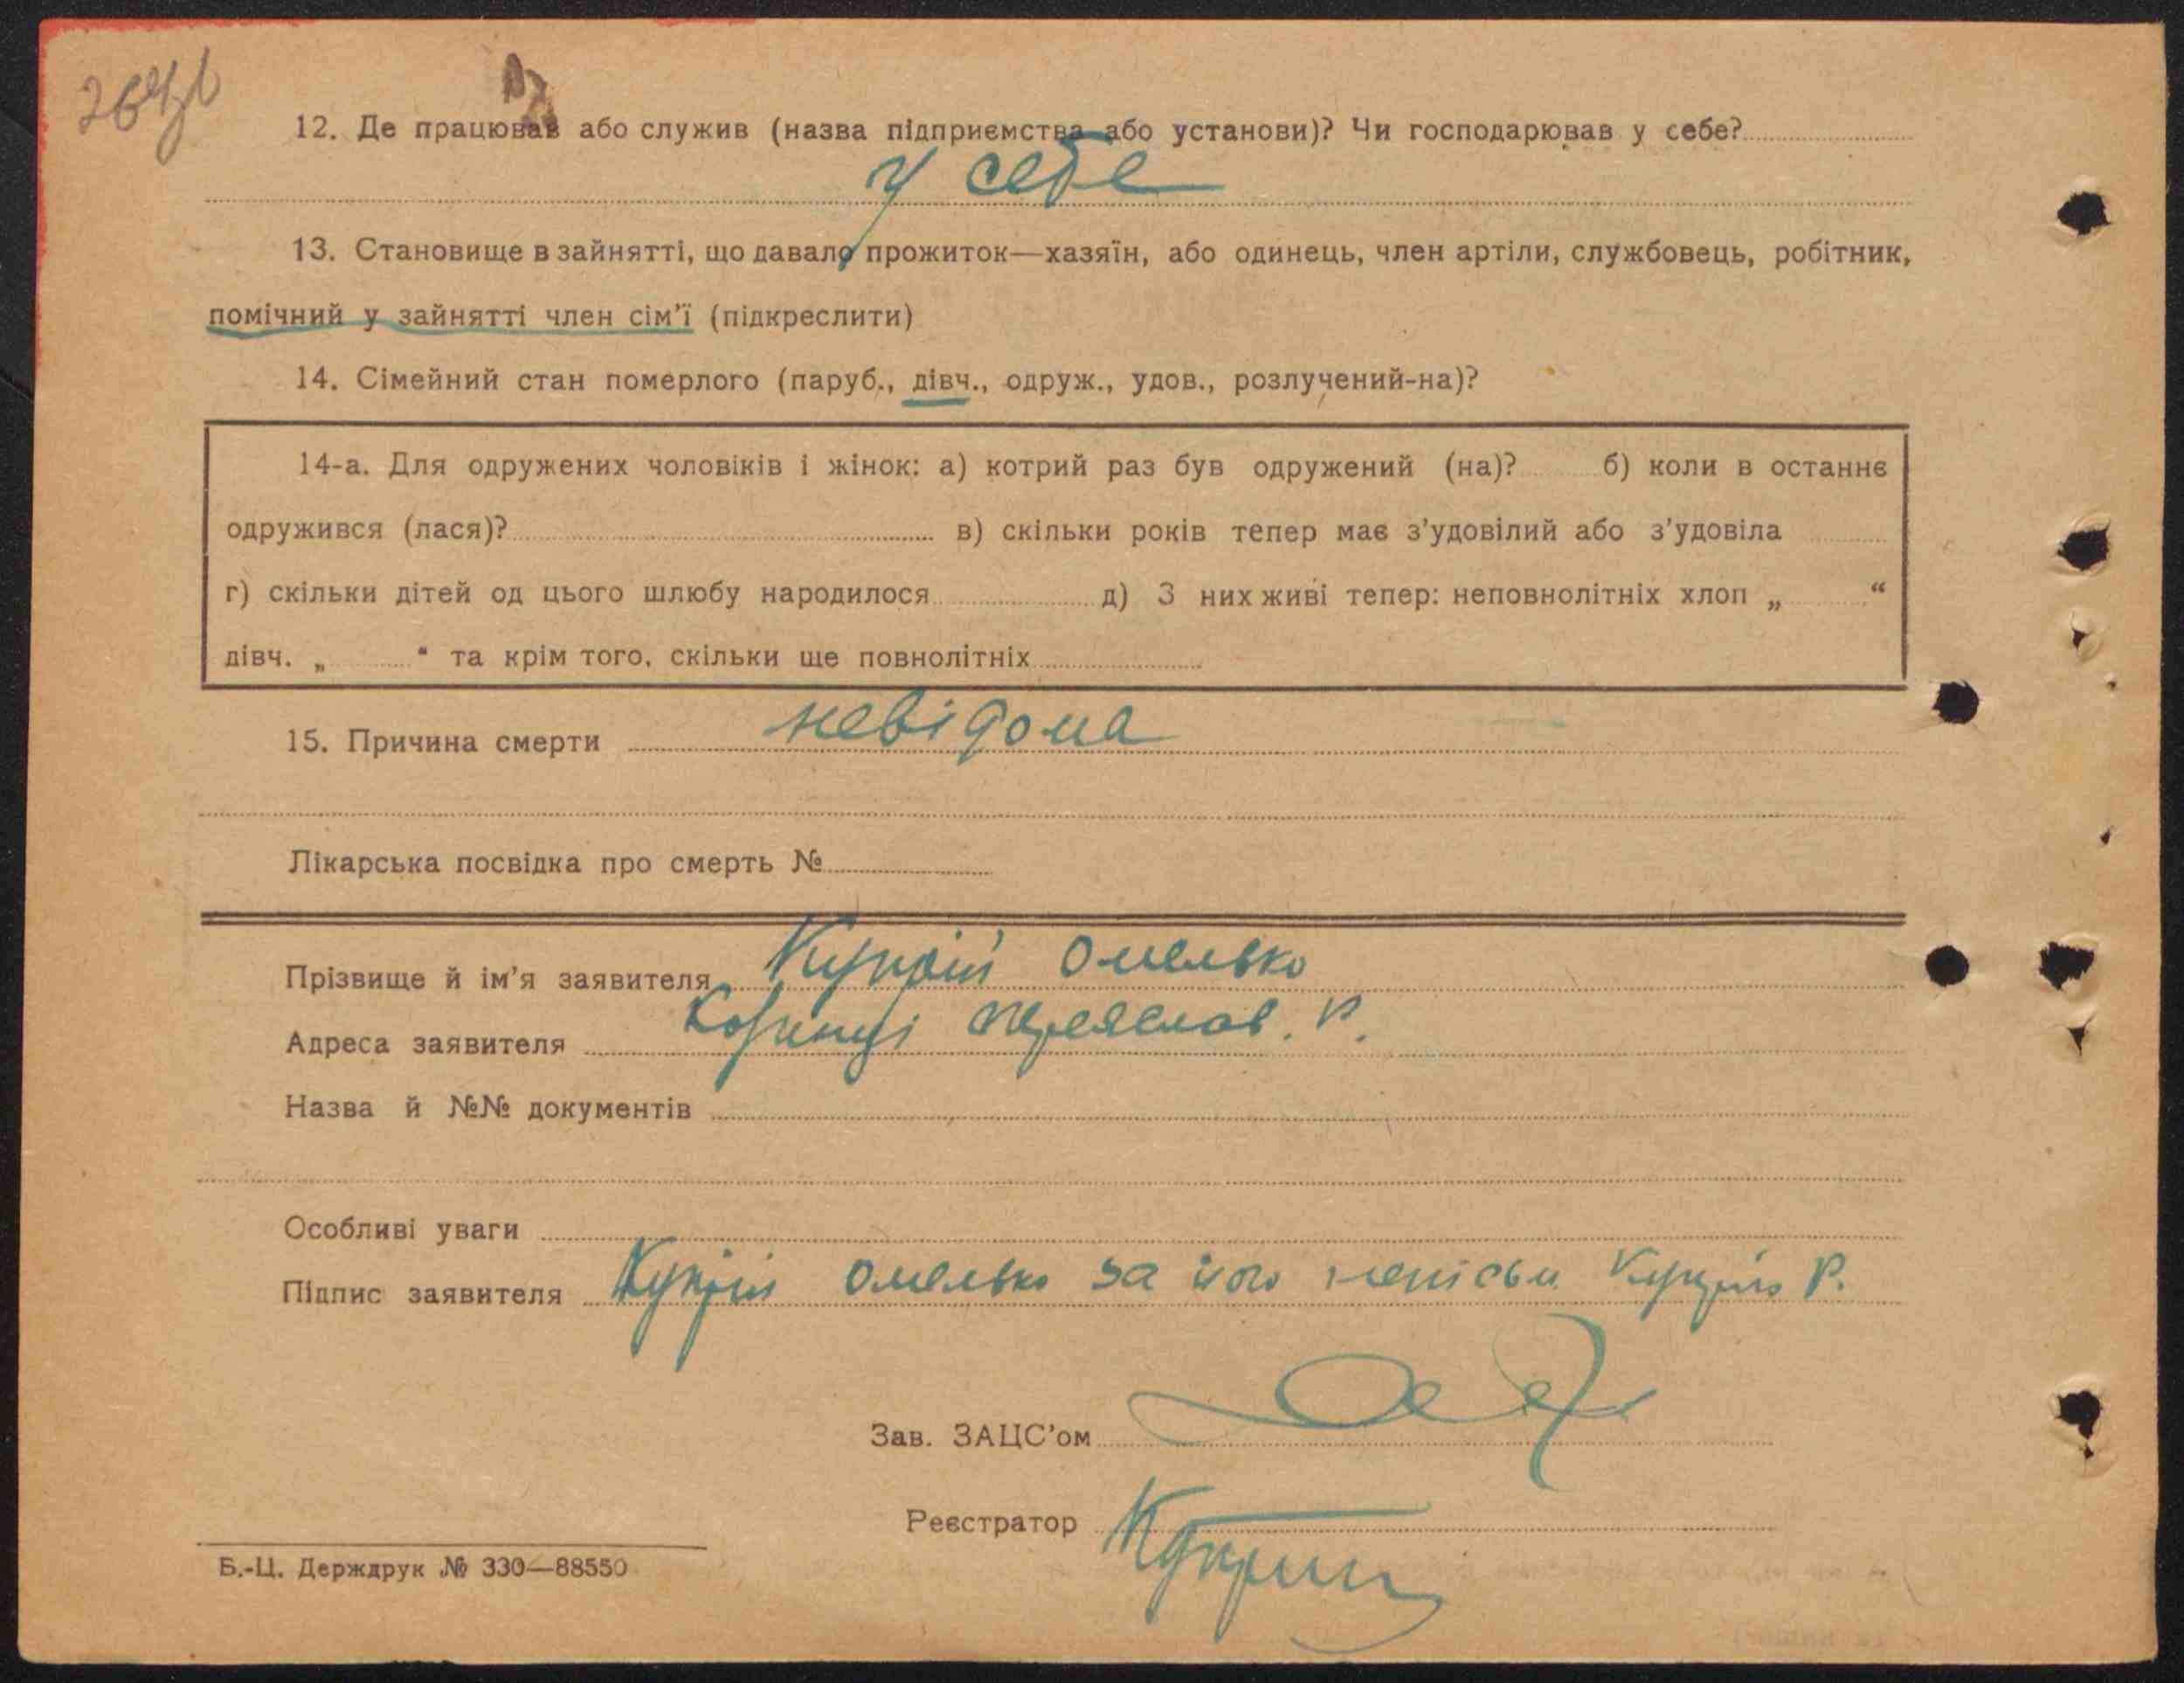 12. Де працював або служив (назва підприємства або установи)? Чи господарював у себе?
у себе
13. Становище в зайнятті, що давало прожиток—хазяїн, або одинець, член артіли, службовець, робітник,
помічний у зайнятті член сім'ї (підкреслити)
14. Сімейний стан померлого (паруб., дівч., одруж., удов., розлучений-на)?
14-а. Для одружених чоловіків і жінок: а) котрий раз був одружений (на)? б) коли в останнє
одружився (лася)? в) скільки років тепер має з'удовілий або з'удовіла
г) скільки дітей од цього шлюбу народилося д) З них живі тепер: неповнолітніх хлоп „ “
дівч. „ “ та крім того, скільки ще повнолітніх
15. Причина смерти невідома
Лікарська посвідка про смерть №
Прізвище й ім'я заявителя Купрій Омелько
Адреса заявителя Переяслав. р.
Назва й №№ документів
Особливі уваги
Підпис заявителя Купрій Омелько за його Купрій Р.
Зав. ЗАЦС'ом
Реєстратор
Б.-Ц. Держдрук № 330—88550